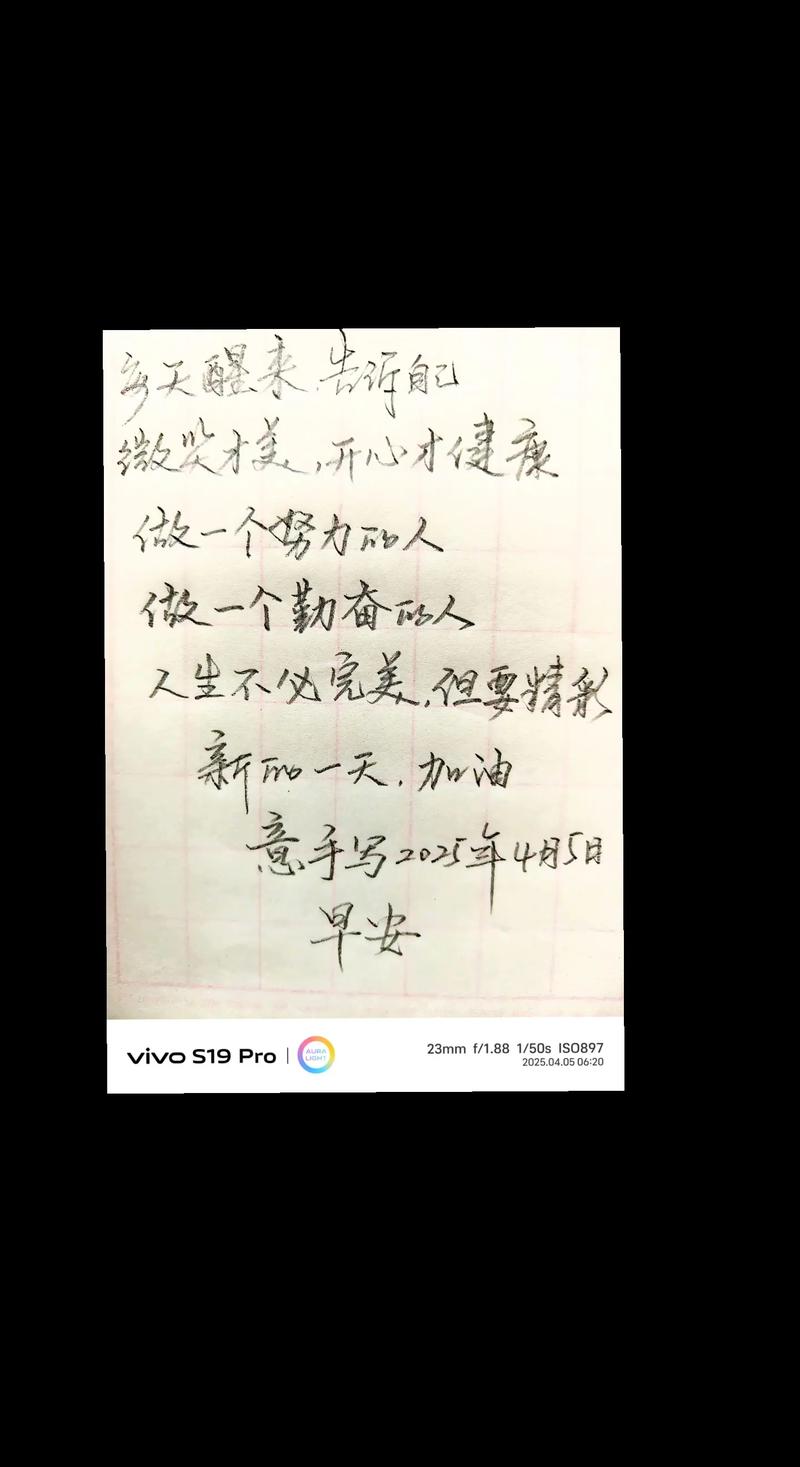 每天醒来,告诉自己
微笑才美,开心才健康
做一个努力的人
做一个勤奋的人
人生不必完美,但要精彩
新的一天,加油
意手写2025年4月5日
早安
vivo S19 Pro | AURA LIGHT
23mm f/1.88 1/50s ISO897
2025.04.05 06:20